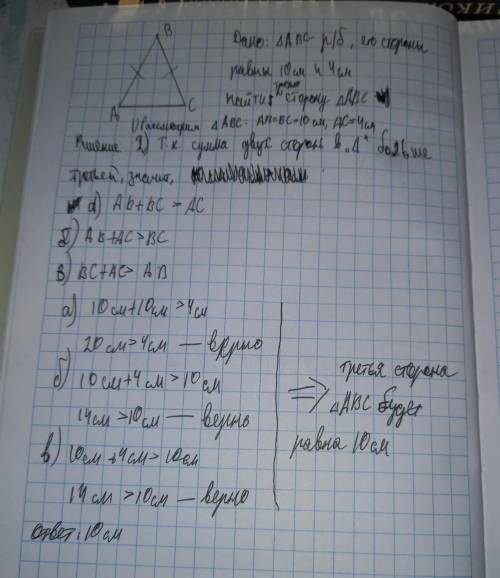 B
A
C
Дано: △ABC - р/б, его стороны
равны 10см и 4см
Найти: третью сторону △ABC
1) Рассмотрим △ABC: AB=BC=10см, AC=4см
Решение 2) Т.к. сумма двух сторон в "△" больше
третьей, значит,
а) AB+BC > AC
б) AB+AC>BC
в) BC+AC> AB
а) 10см+10см >4см
20см>4см — верно
б) 10см+4см > 10см
14см >10см — верно
в) 10см +4см> 10см
14см >10см — верно
=> третья сторона
△ABC будет
равна 10см
Ответ: 10см